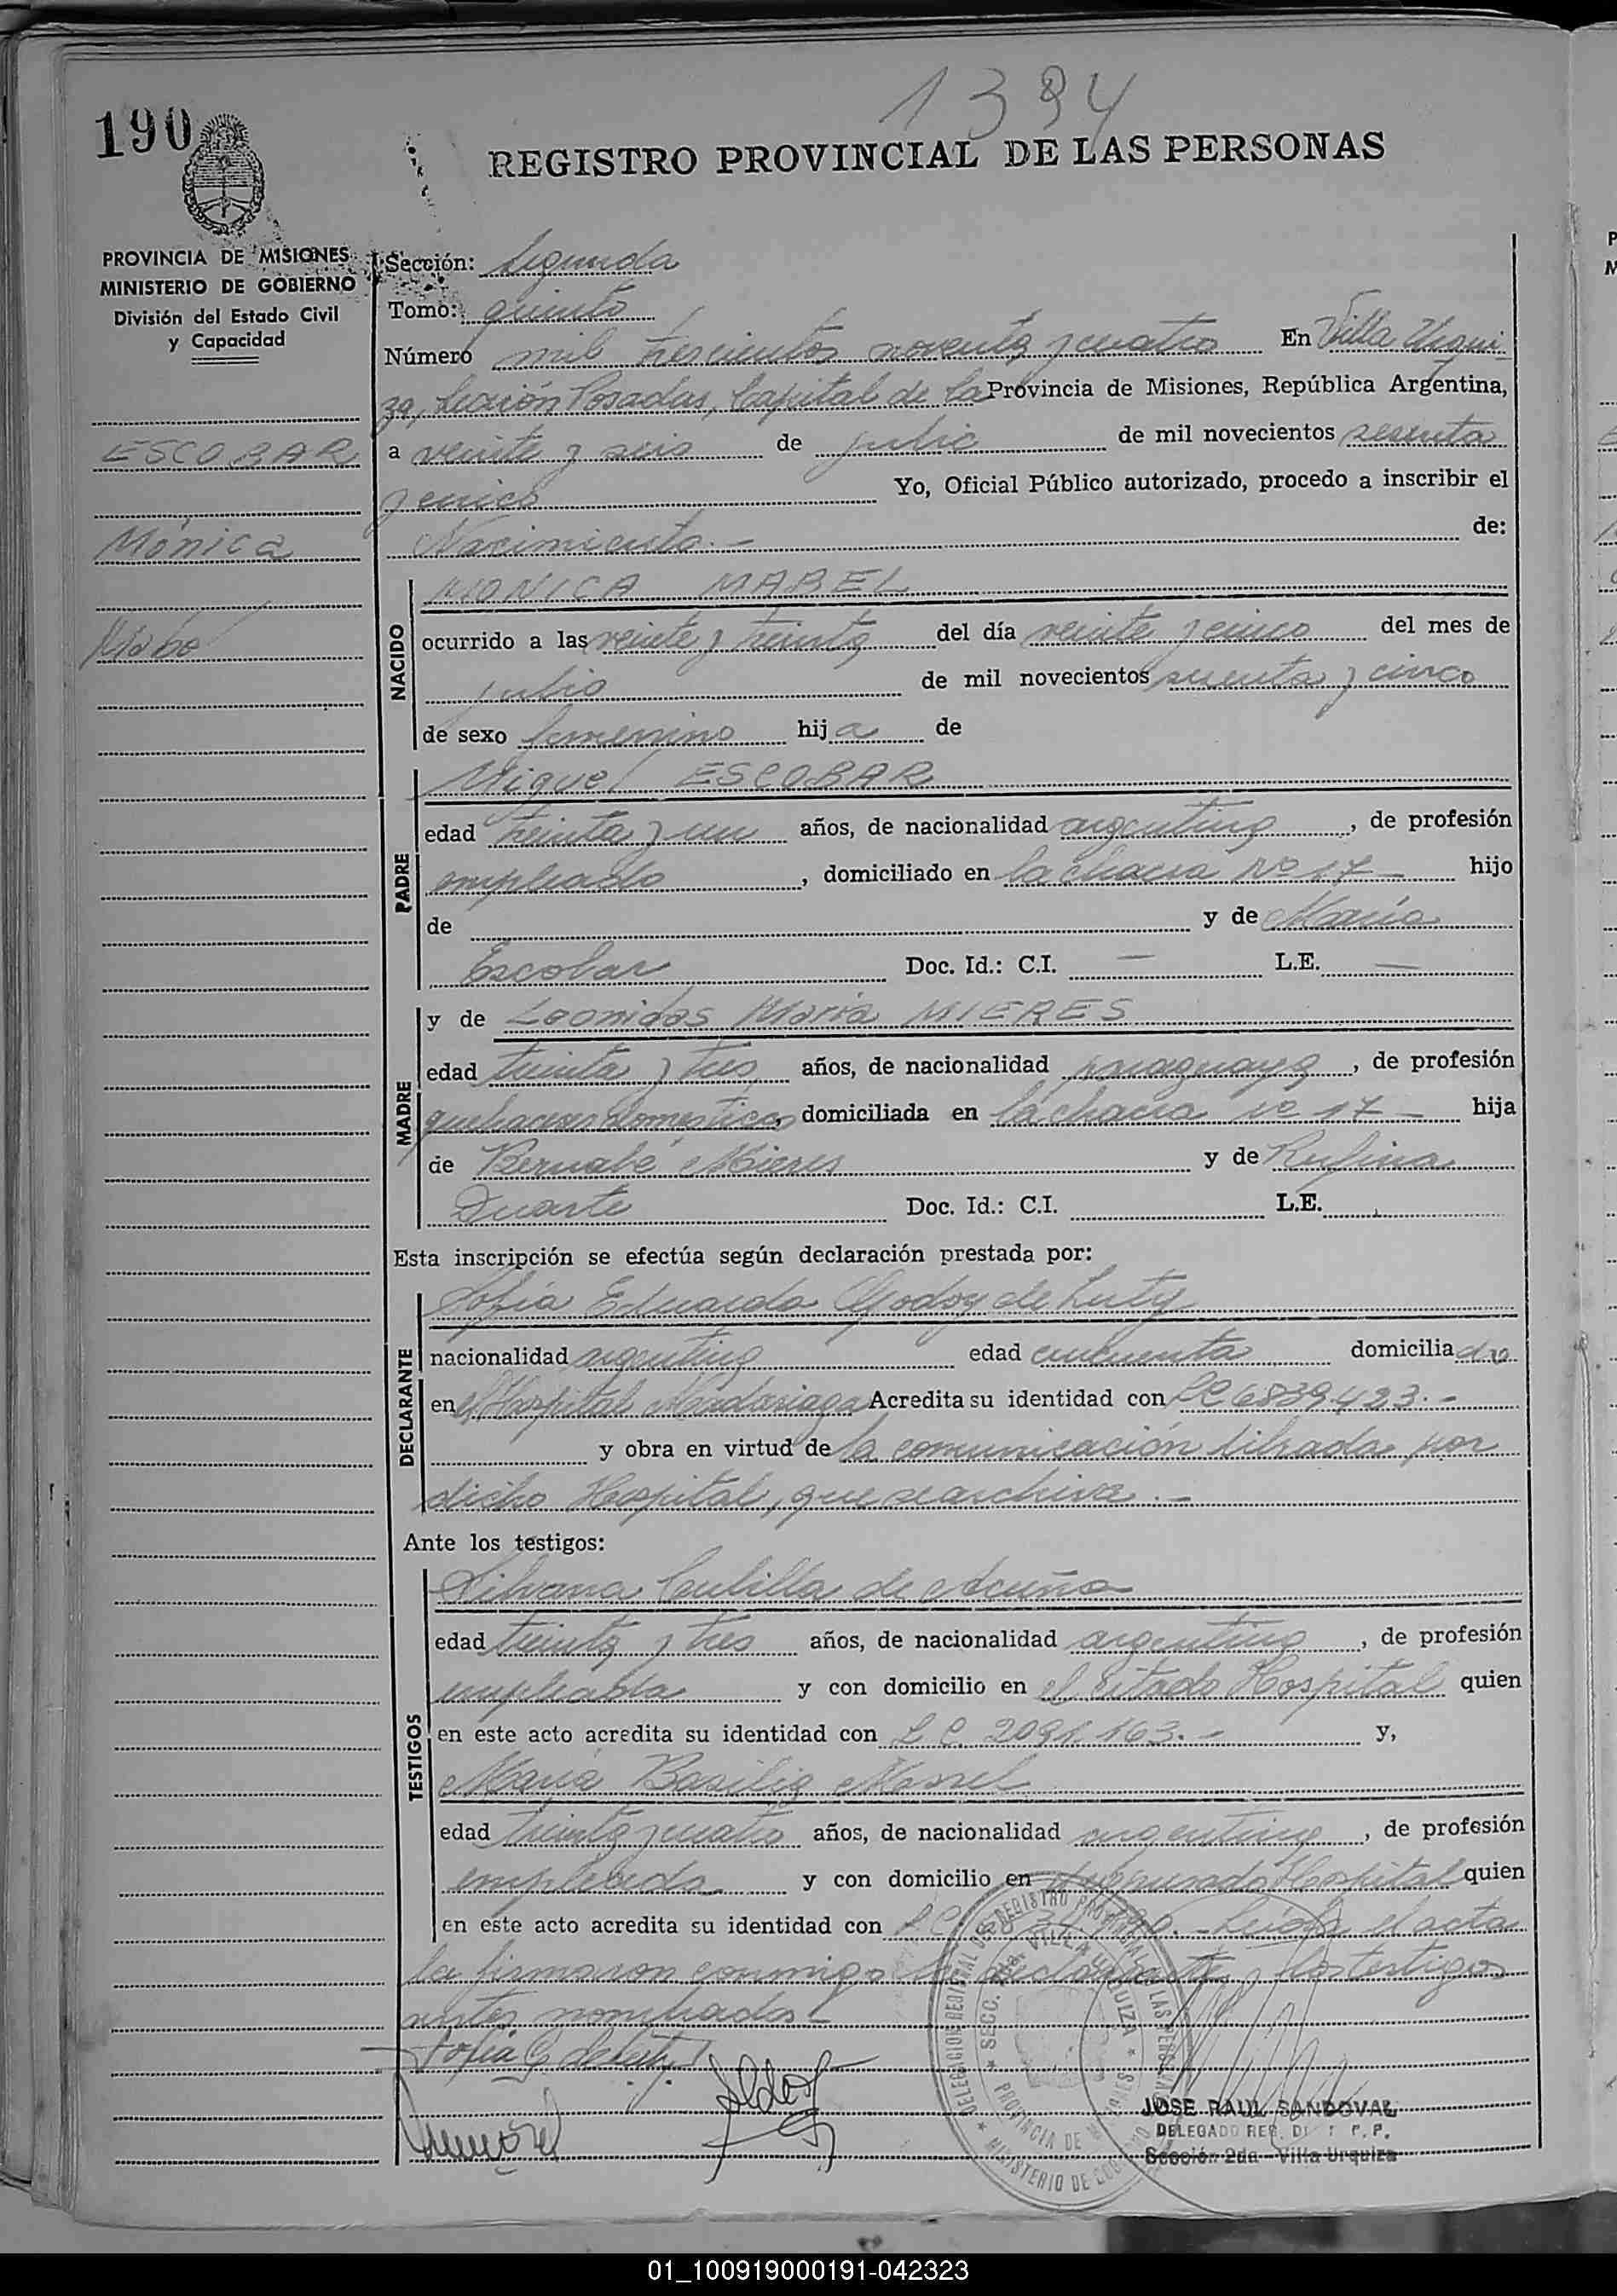 1394
190
REGISTRO PROVINCIAL DE LAS PERSONAS
PROVINCIA DE MISIONES
MINISTERIO DE GOBIERNO
División del Estado Civil
y Capacidad
ESCOBAR
Mónica
Mabel
Sección: Segunda
Tomo: quinto
Número mil trescientos noventa y cuatro En Villa Urqui-
za, Sección Posadas, Capital de la Provincia de Misiones, República Argentina,
a veinte y seis de julio de mil novecientos sesenta
y cinco Yo, Oficial Público autorizado, procedo a inscribir el
Nacimiento.- de:
NACIDO
MONICA MABEL
ocurrido a las veinte y treinta del día veinte y cinco del mes de
julio de mil novecientos sesenta y cinco
de sexo femenino hija de
PADRE
Miguel ESCOBAR
edad treinta y un años, de nacionalidad argentino, de profesión
empleado, domiciliado en la chacra Nº 17 - hijo
de y de María
Escobar Doc. Id.: C.I. — L.E. —
MADRE
y de Leonidas María MIERES
edad treinta y tres años, de nacionalidad paraguaya, de profesión
quehaceres domesticos, domiciliada en la chacra Nº 17 - hija
de Bernabé Mieres y de Rufina
Duarte Doc. Id.: C.I. L.E.
Esta inscripción se efectúa según declaración prestada por:
DECLARANTE
Sofía Eduarda Godoy de Luty
nacionalidad argentina edad cincuenta domiciliada
en el Hospital Madariaga Acredita su identidad con LC 6839.423.-
y obra en virtud de la comunicación librada por
dicho Hospital, que se archiva.-
Ante los testigos:
TESTIGOS
Silvana Cubilla de Acuña
edad treinta y tres años, de nacionalidad argentina, de profesión
empleada y con domicilio en el citado Hospital quien
en este acto acredita su identidad con L.C. 2091.163.- y,
María Basilia
edad treinta y cuatro años, de nacionalidad argentina, de profesión
empleada y con domicilio en Hospital quien
en este acto acredita su identidad con L.C. Leída el acta
la firmaron conmigo la declarante y los testigos
antes nombrados.-
Sofía G de Luty
DELEGACION REGISTRO PROVINCIAL DE LAS PERSONAS
SECC. 2da. VILLA URQUIZA
PROVINCIA DE MISIONES
MINISTERIO DE GOBIERNO
JOSE RAUL SANDOVAL
DELEGADO REG. P.P.
Sección 2da - Villa Urquiza
01_100919000191-042323